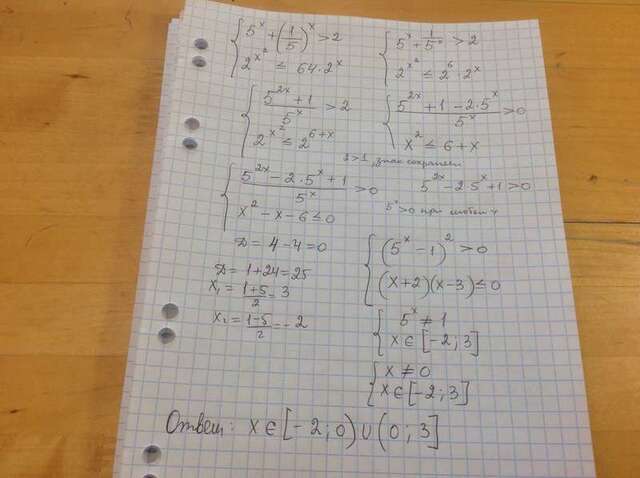 {5^x + (1/5)^x > 2
2^(x^2) ≤ 64·2^x
{5^x + 1/5^x > 2
2^(x^2) ≤ 2^6·2^x
{(5^(2x) + 1)/5^x > 2
2^(x^2) ≤ 2^(6+x)
{(5^(2x) + 1 - 2·5^x)/5^x > 0
x^2 ≤ 6 + x
2 > 1, знак сохраняем
{(5^(2x) - 2·5^x + 1)/5^x > 0
x^2 - x - 6 ≤ 0
5^(2x) - 2·5^x + 1 > 0
5^x > 0 при
D = 4 - 4 = 0
D = 1 + 24 = 25
x₁ = (1+5)/2 = 3
x₂ = (1-5)/2 = -2
{(5^x - 1)^2 > 0
(x+2)(x-3) ≤ 0
{5^x ≠ 1
x ∈ [-2; 3]
{x ≠ 0
x ∈ [-2; 3]
Ответ: x ∈ [-2; 0) ∪ (0; 3]